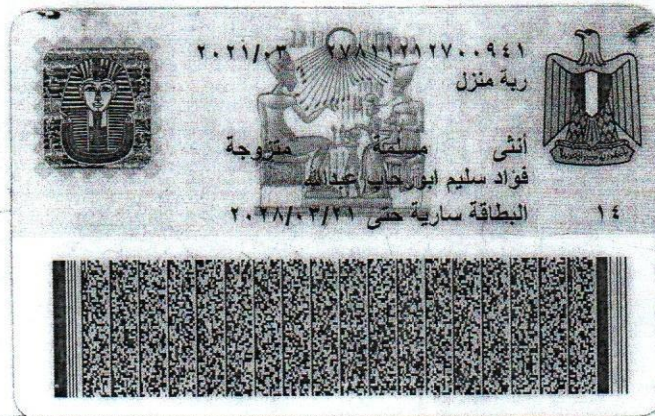 ٢٧٨١١٢١٢٧٠٠٩٤١ ٢٠٢١/٠٣
ربة منزل
أنثى مسلمة متزوجة
فؤاد سليم ابورحاب عبدالله
البطاقة سارية حتى ٢٠٢٨/٠٣/٢١
١٤